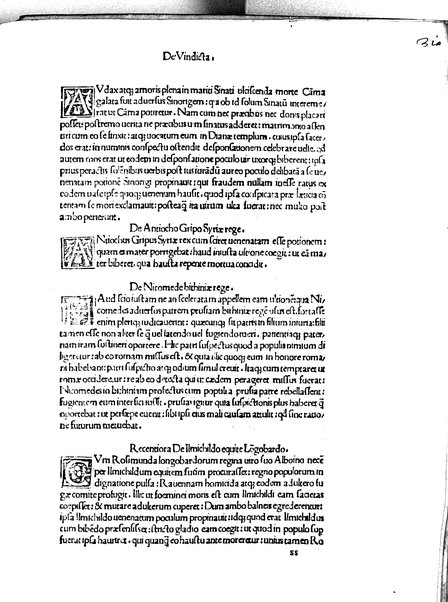 De Vindicta.
AVdax atq; amoris plena in mariti Sinati ulciscenda morte Cāma
galata fuit aduersus Sinorigem: qui ob id solum Sinatū intereme
rat ut Cāma potiretur. Nam cum nec præcibus nec donis placari
posset: postremo uerita ne præcibus uim sinatus adderet: matrimonio assen
tiri cum eo se finxit: atq; uocatum eum in Dianæ templum, cuius ipsa sacer
dos erat: in numinis conspectu ostendit desponsationem celebrare uelle. ad
autem mos erat ut eodem in desponsatione poculo uir uxorq; biberent: ipsa
prius peractis solēnibus uerbis post tus iurādū aureo poculo delibata se ue
nenatam potionē Sinorigi propinauit: qui fraudem nullam inesse ratus ex
eodem uase ipse quoq; uenenum hausit. quo ipsa conspicata præ læticia cō
tentam se mori exclamauit: posteaq̄ ita uirum ulta fuerat: nec multo post
ambo perierunt.
De Antiocho Gripo Syriæ rege.
ANtiochus Gripus Syriæ rex cum sciret uenenatam esse potionem:
quam ei mater porrigebat: haud iniusta ultrone coegit: ut ea ma
ter biberet. qua hausta repente mortua concidit.
De Nicomede bithiniæ rege.
HAud scio iustam ne an sceleratam appellem eam ultionē: qua Ni
comedes aduersus patrem prusiam bithiniæ regē usus est. fortasse
enim pleriq; iudicauerint: quæcunq; sit patris in filium iniuria: fili
tamen esse non alter se q̄ uel latendo uel fugiendo tueri. parentūq; pater
nam iram sustineri oportere. Hic patri suspectus quod a populis nimium di
ligeretur: ab eo romam missus est. & quia illic quoq; eum in honore roma
ni habebant: patri suspectio atq; odium simul creuit. Itaq; cum temptaret ut
romæ occideretur: re ab eo detecta qui ut cædem perageret missus fuerat:
Nicomedes in bithiniam profectus cum populi a prusia patre rebellassent:
fugientem eum interfici iussit. prusias igitur quia suspictionis plus haberet q̄
oportebat: ut persepe euenit: sibi ipsi eius mali causam attulit: qd sine ratio
ne futurum metuebat.
Recentiora De Ilmichildo equite Lōgobardo.
CVm Rosimunda longobardorum regina uiro suo Alboino necē
per Ilmichildum equitem suum procurasset: regno populorum in
dignatione pulsa: Rauennam homicida atq; eodem adultero fu
gæ comite profugit. Illic ut foeminei moris est cum Ilmichildi eam sacietas
cœpisset: & mutare adulterum cuperet: Dum ambo balneis egrederentur:
ipsa Ilmichildo uenenatum poculum propinauit: idq; quod erat Ilmichildus
cum bibēdo præsensisset: stricto gladio eam coegit: ut quod in poculo sup
fuerat ipsa hauriret. qui quanq̄ eo haustu ante moreretur: unius tamen Ro
ss